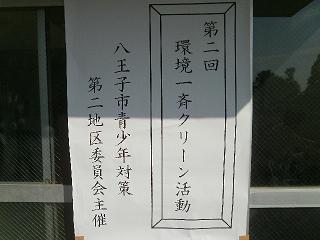 第二回
環境一斉クリーン活動
八王子市青少年対策
第二地区委員会主催